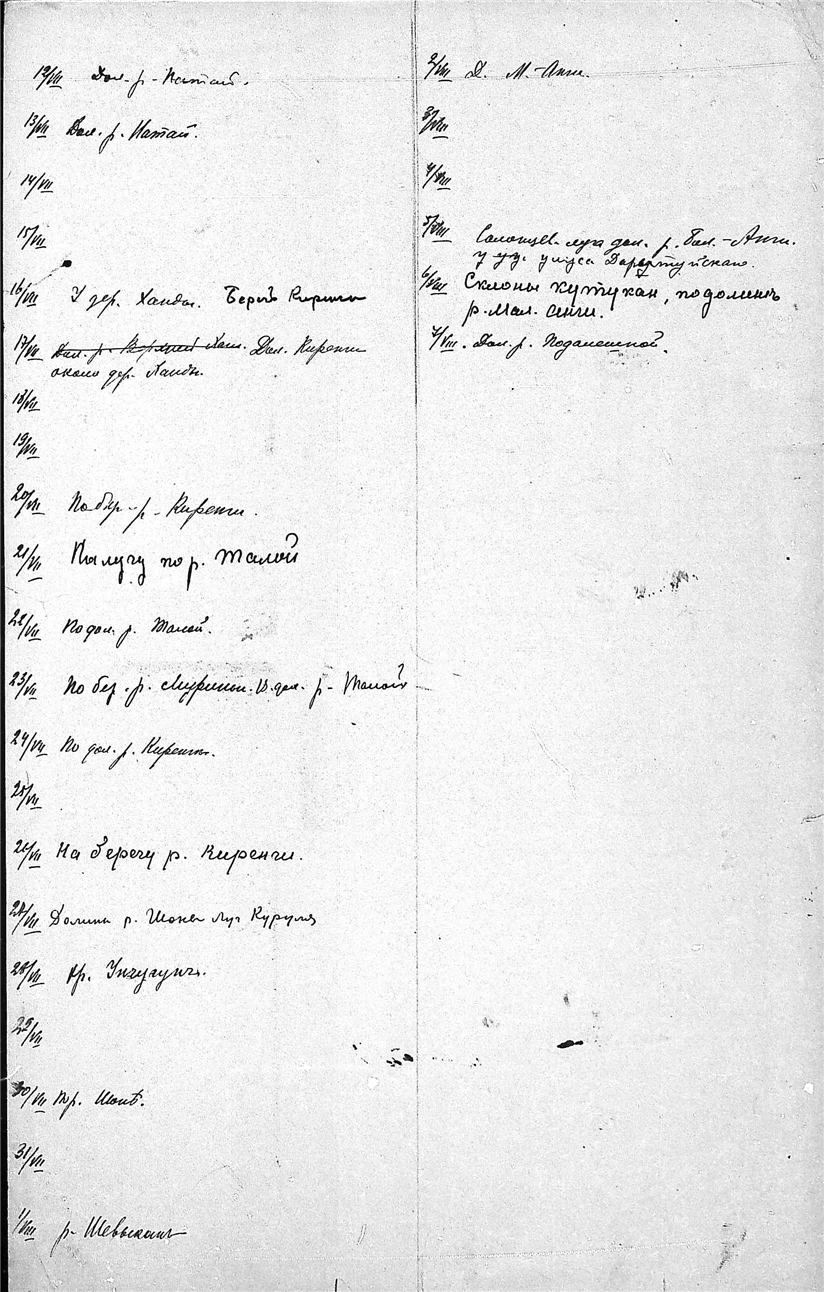 12/VII Дол. р. Натай.
13/VII Дол. р. Натай.
14/VII
15/VII
16/VII У дер. Ханды. Берегъ Киренги
17/VII Дол. р. Ханд. Дол. Киренги
около дер. Ханды.
18/VII
19/VII
20/VII По бер. р. Киренги.
21/VII На лугу по р. Талой
22/VII По дол. р. Талой.
23/VII По бер. р. Мурины. В дол. р. Талой
24/VII По дол. р. Киренги.
25/VII
26/VII На берегу р. Киренги.
27/VII Долина р. луг
28/VII
29/VII
30/VII
31/VII
1/VIII р. Шевыкан
2/VIII Д. М. Анги.
3/VIII
4/VIII
5/VIII Солонцев. луга дол. р. Бол. Анги.
у улуса
6/VIII Склоны кутукан, по долинѣ
р. Мал. Анги.
7/VIII. Дол. р.